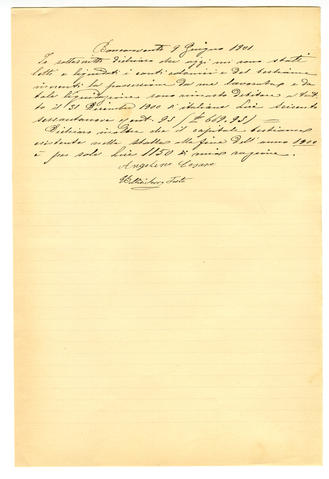 9 Giugno 1901
Io sottoscritto dichiaro che oggi mi sono stati
letti e liquidati i conti colonici e del bestiame
inerenti la possessione da me lavorata e da
tale liquidazione sono rimasto debitore a tut
to il 31 Dicembre 1900 di italiane Lire seicento
sessantanove e cent. 93 (£ 669.93)
Dichiaro inoltre che il capitale bestiame
esistente nella stalla alla fine dell'anno 1900
è per sole Lire 1150 di mia ragione.
Angelino Cesare